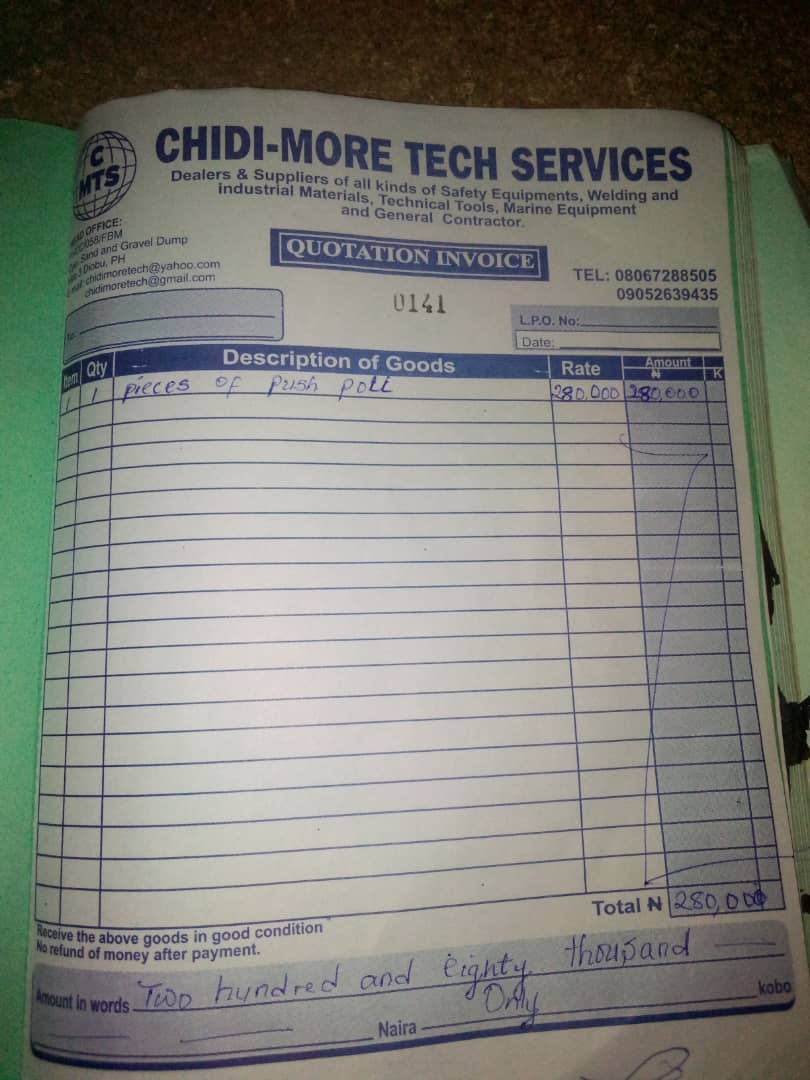 C
MTS
CHIDI-MORE TECH SERVICES
Dealers & Suppliers of all kinds of Safety Equipments, Welding and
industrial Materials, Technical Tools, Marine Equipment
and General Contractor.
OFFICE:
058/FBM
Sand and Gravel Dump
3 Diobu, PH
chidimoretech@yahoo.com
chidimoretech@gmail.com
QUOTATION INVOICE
TEL: 08067288505
09052639435
0141
L.P.O. No:
Date:
Item Qty Description of Goods Rate Amount
₦ K
1 1 pieces of push poll 280,000 280,000
Total ₦ 280,000
Receive the above goods in good condition
No refund of money after payment.
Amount in words Two hundred and Eighty thousand
Only
Naira kobo